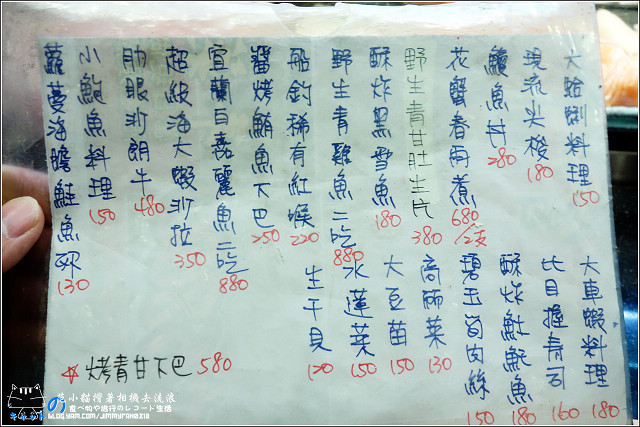 大蛤蜊料理 150
現流尖梭 180
鰻魚丼 280
花蟹春雨煮 680/2支
野生青甘肚生片 380
酥炸黑雪魚 180
野生青雞魚二吃 880
船釣稀有紅喉 220
醬烤鮪魚下巴 250
宜蘭白嘉麗魚二吃 880
超級海大蝦沙拉 350
肋眼沙朗牛 480
小鮑魚料理 150
蘿蔓海膽鮭魚卵 130
大車蝦料理 180
比目握壽司 160
酥炸魟魠魚 180
碧玉筍肉絲 150
高麗菜 130
大豆苗 150
水蓮菜 150
生干貝 120
☆烤青甘下巴 580
花小貓揹著相機去流浪
食べ物や旅行のレコート生活